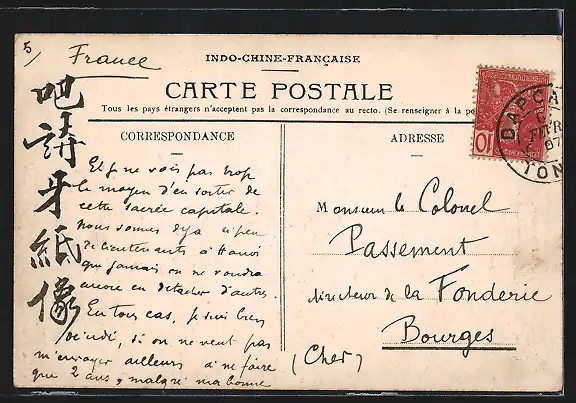 5
France
INDO-CHINE-FRANÇAISE
CARTE POSTALE
Tous les pays étrangers n'acceptent pas la correspondance au recto. (Se renseigner à la po
CORRESPONDANCE
ADRESSE
吧 講 牙 紙 像
Et je ne vois pas trop
le moyen d'en sortir de
cette sacrée capitale.
Nous sommes déjà si peu
de lieutenants à Hanoi
que jamais on ne voudra
encore en détacher d'autres.
En tous cas, je suis bien
décidé, si on ne veut pas
m'envoyer ailleurs à ne faire
que 2 ans, malgré ma bonne
Monsieur le Colonel
Passement
directeur de la Fonderie
Bourges
(Cher)
10
DAP-CA
TON